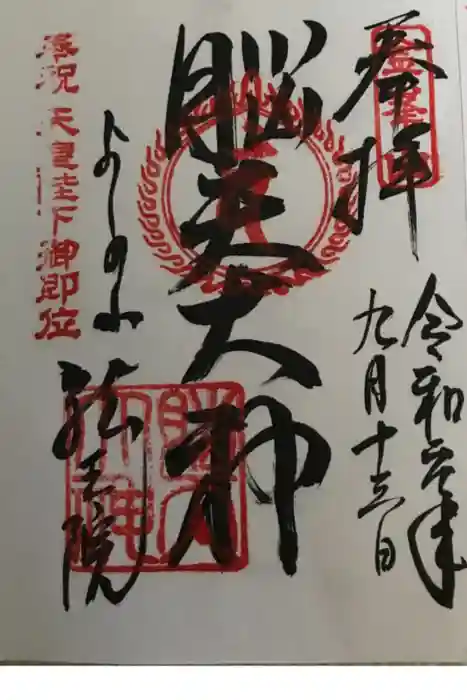 奉拝
令和元年
九月十三日
脳天大神
よしの山
龍王院
奉祝 天皇陛下御即位